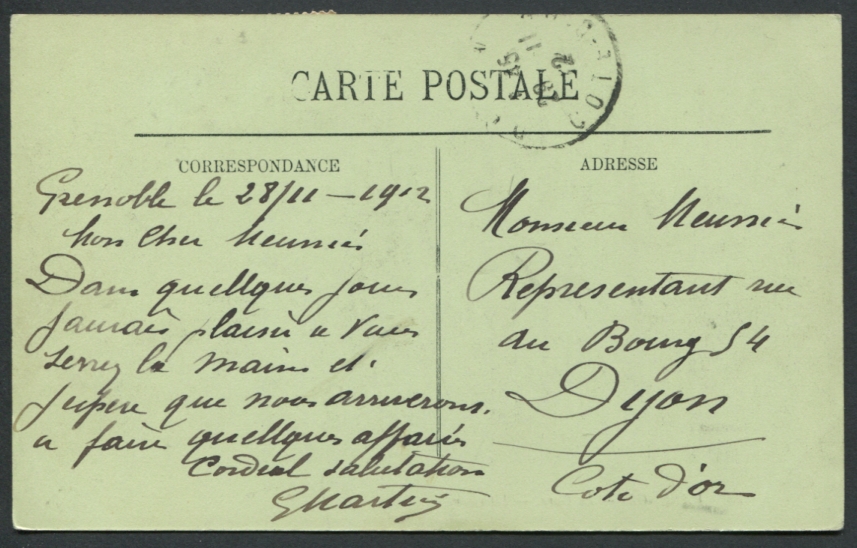 CARTE POSTALE
COTE-D'OR
CORRESPONDANCE
Grenoble le 28/11 – 1912
Mon Cher Meunier
Dans quellques jours
jaurais plaisir a vous
serrez la main et
jespere que nous arriverons
a faire quellques affaires
Cordial salutation
GMartin
ADRESSE
Monsieur Meunier
Representant rue
du Bourg 54
Dijon
Cote d'or